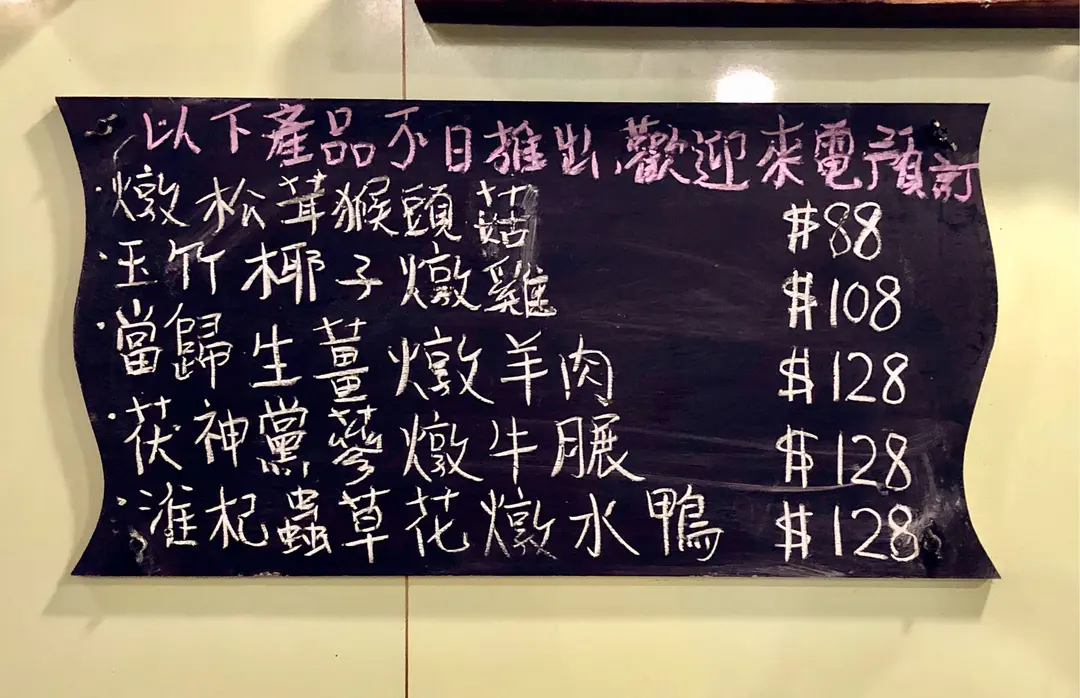 以下產品不日推出,歡迎來電預訂
·燉松茸猴頭菇 $88
·玉竹椰子燉雞 $108
·當歸生薑燉羊肉 $128
·茯神黨蔘燉牛𦟌 $128
·淮杞蟲草花燉水鴨 $128